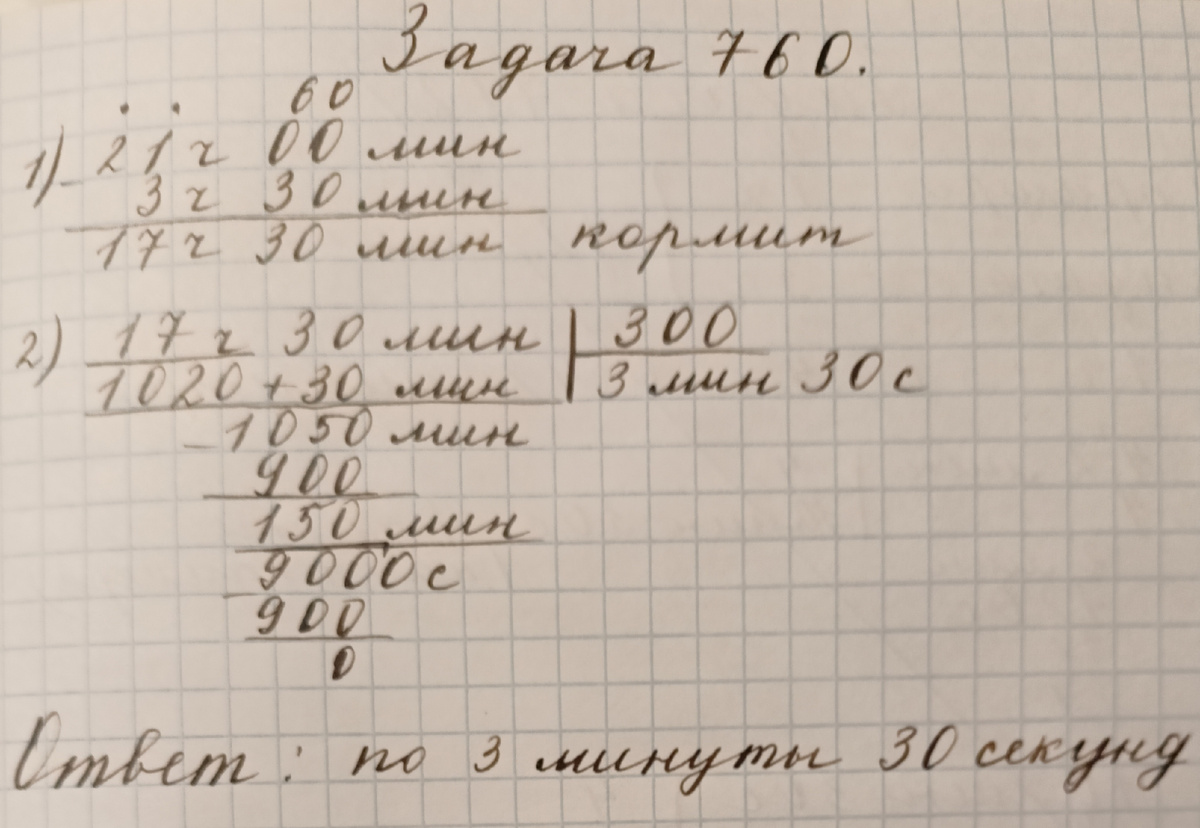 Задача 760.
. . 60
1) - 21 ч 00 мин
3 ч 30 мин
17 ч 30 мин кормит
2) 17 ч 30 мин | 300
1020 + 30 мин | 3 мин 30 с
- 1050 мин
900
150 мин
- 9000 с
900
0
Ответ: по 3 минуты 30 секунд